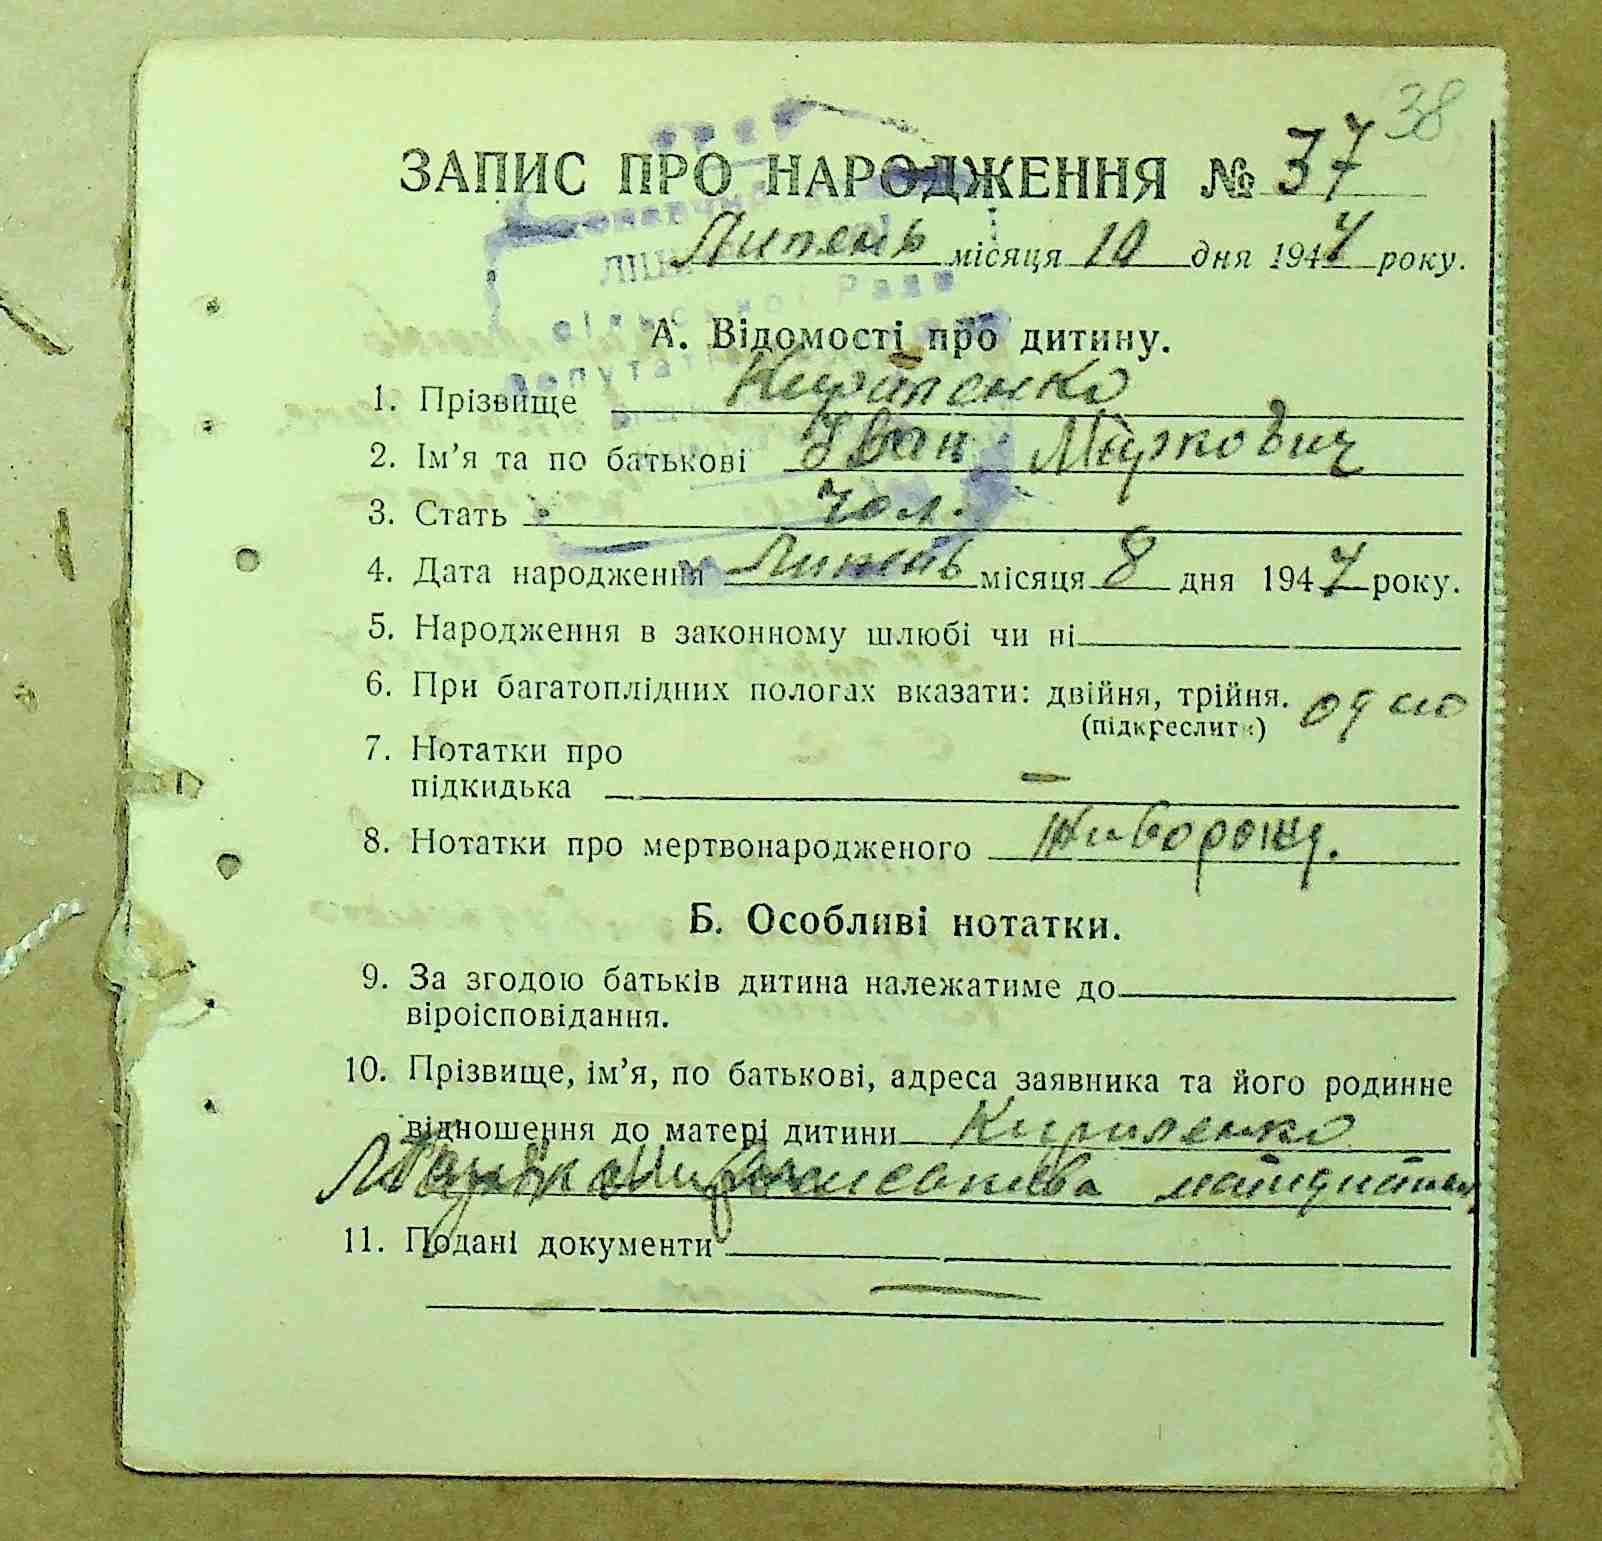 38
ЗАПИС ПРО НАРОДЖЕННЯ № 37
Липень місяця 10 дня 1947 року.
А. Відомості про дитину.
1. Прізвище Кириленко
2. Ім'я та по батькові Іван Маркович
3. Стать чол.
4. Дата народження Липень місяця 8 дня 1947 року.
5. Народження в законному шлюбі чи ні
6. При багатоплідних пологах вказати: двійня, трійня. одно
(підкреслити)
7. Нотатки про
підкидька —
8. Нотатки про мертвонародженого живорожд.
Б. Особливі нотатки.
9. За згодою батьків дитина належатиме до
віроісповідання.
10. Прізвище, ім'я, по батькові, адреса заявника та його родинне
відношення до матері дитини Кириленко
11. Подані документи
—